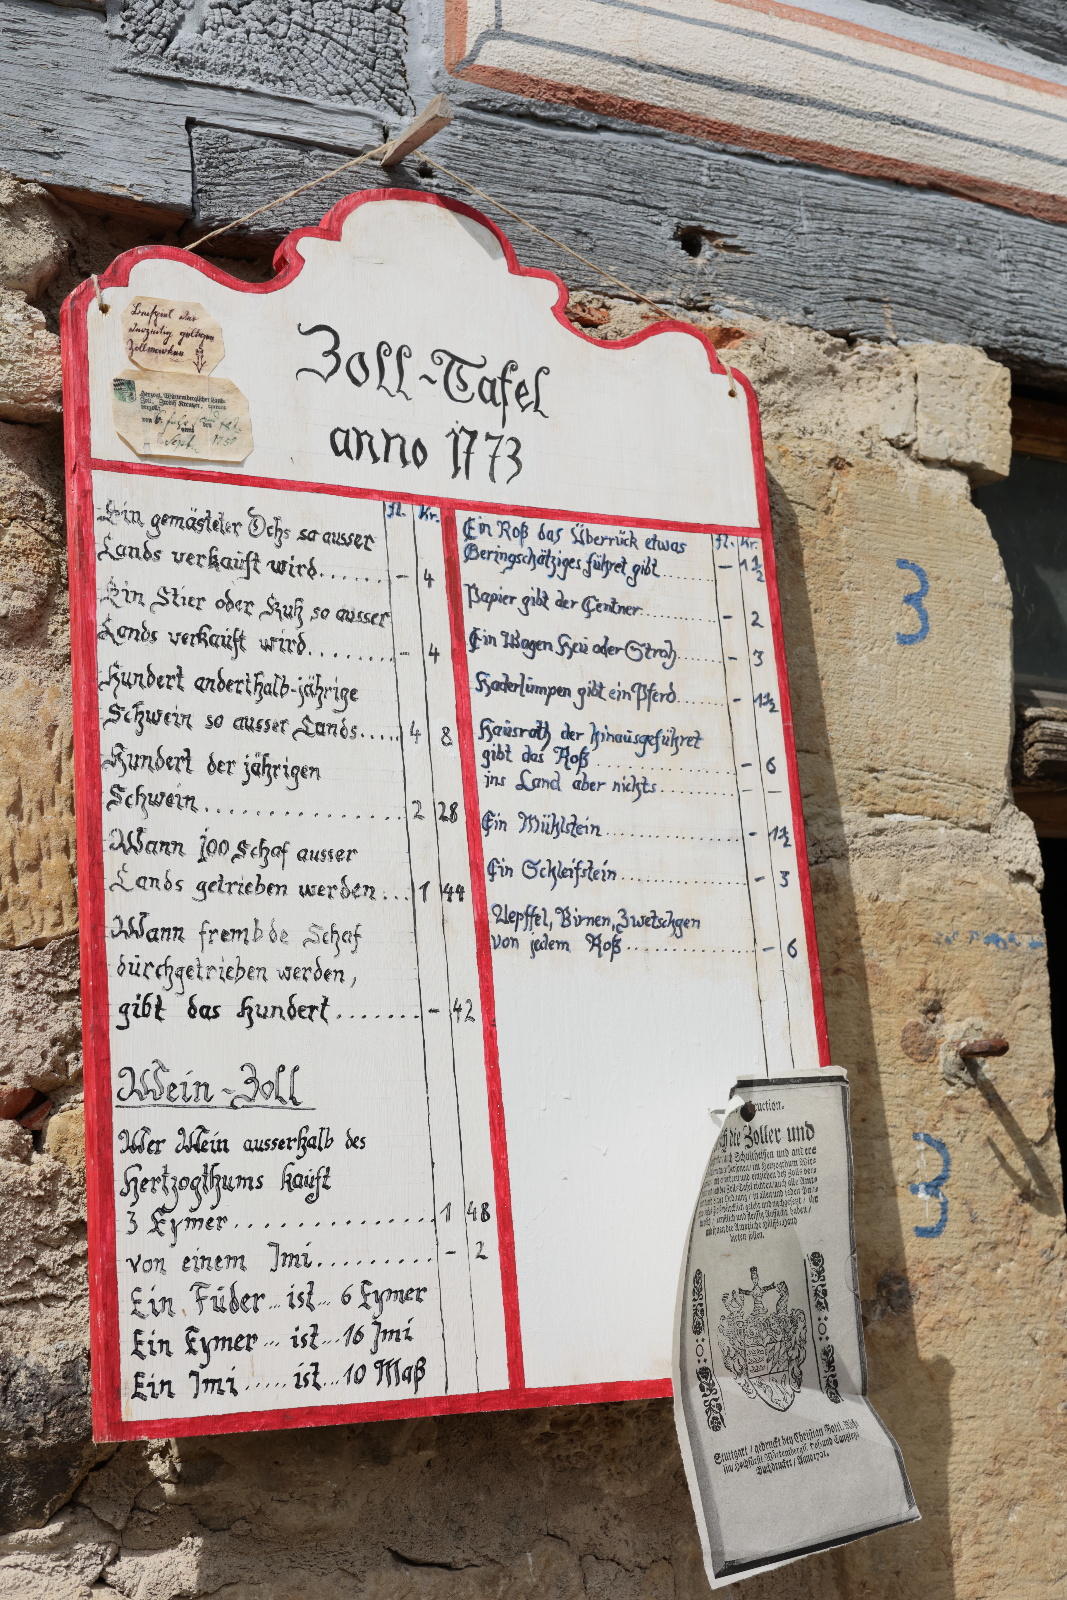 Beispiel der
derzeitig gültigen
Zollmarken
Herzogl. Württembergischer Land-
Zoll-Tafel
anno 1773
fl. Kr.
Ein gemästeter Ochs so ausser
Lands verkauft wird...... - 4
Ein Stier oder Kuh so ausser
Lands verkauft wird........ - 4
Hundert anderthalb-jährige
Schwein so ausser Lands..... 4 8
Hundert der jährigen
Schwein.................. 2 28
Wann 100 Schaf ausser
Lands getrieben werden... 1 44
Wann frembde Schaf
dürchgetrieben werden,
gibt das Hundert........ - 42
Wein-Zoll
Wer Wein ausserhalb des
Hertzogthums kauft
3 Eymer............... 1 48
von einem Imi.......... - 2
Ein Füder...ist...6 Eymer
Ein Eymer...ist...16 Imi
Ein Imi.....ist...10 Maß
fl. Kr.
Ein Roß das Überrück etwas
Geringschätziges führet gibt........ - 1 1/2
Papier gibt der Centner........... - 2
Ein Wagen Heu oder Stroh........ - 3
Haderlumpen gibt ein Pferd....... - 1 1/2
Hausrath der hinausgeführet
gibt das Roß.................. - 6
ins Land aber nichts........... - -
Ein Mühlstein................. - 1 1/2
Ein Schleifstein................ - 3
Aepffel, Birnen, Zwetschgen
von jedem Roß................ - 6
die Zoller und
Stuttgart / gedruckt bey Christian Gottl.
Buchdrucker / Anno
3
3